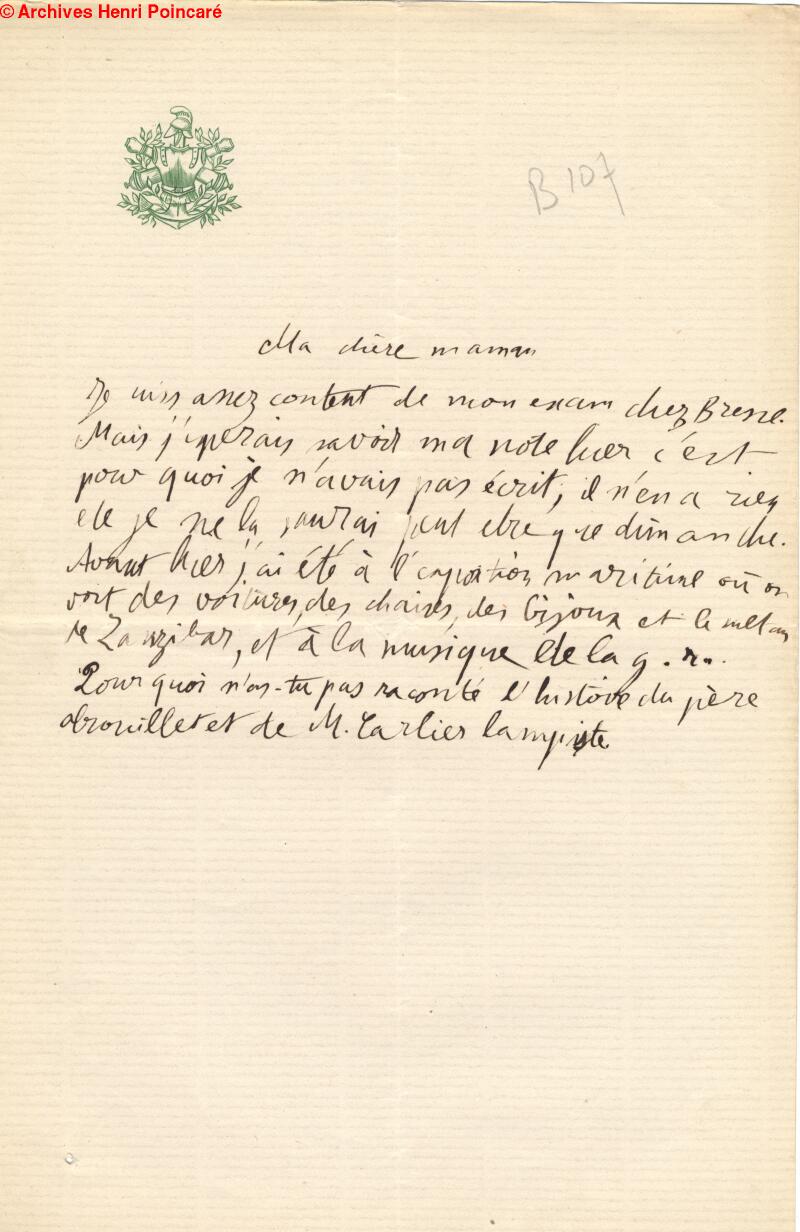 © Archives Henri Poincaré
B 107
Ma chère maman
Je suis assez content de mon exam chez Bresse.
Mais j'espérais savoir ma note hier c'est
pour quoi je n'avais pas écrit; il n'en a rien
été je ne la saurai peut etre que dimanche.
Avant hier j'ai été à l'exposition maritime où on
voit des voitures, des chaises, des bijoux et le sultan
de Zanzibar, et à la musique de la g. r.
Pourquoi n'as-tu pas raconté l'histoire du père
et de M. Carlier lampiste